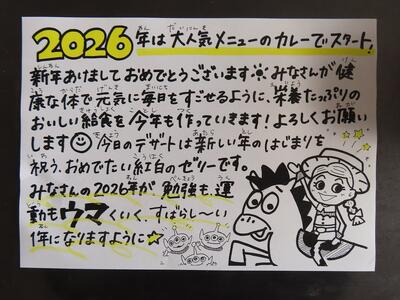 2026年は大人気メニューのカレーでスタート!
新年あけましておめでとうございます みなさんが健
康な体で元気に毎日をすごせるように、栄養たっぷりの
おいしい給食を今年も作っていきます!よろしくお願い
します 今日のデザートは新しい年のはじまりを
祝う、おめでたい紅白のゼリーです。
みなさんの2026年が、勉強も、運
動もウマくいく、すばらし〜い
1年になりますように